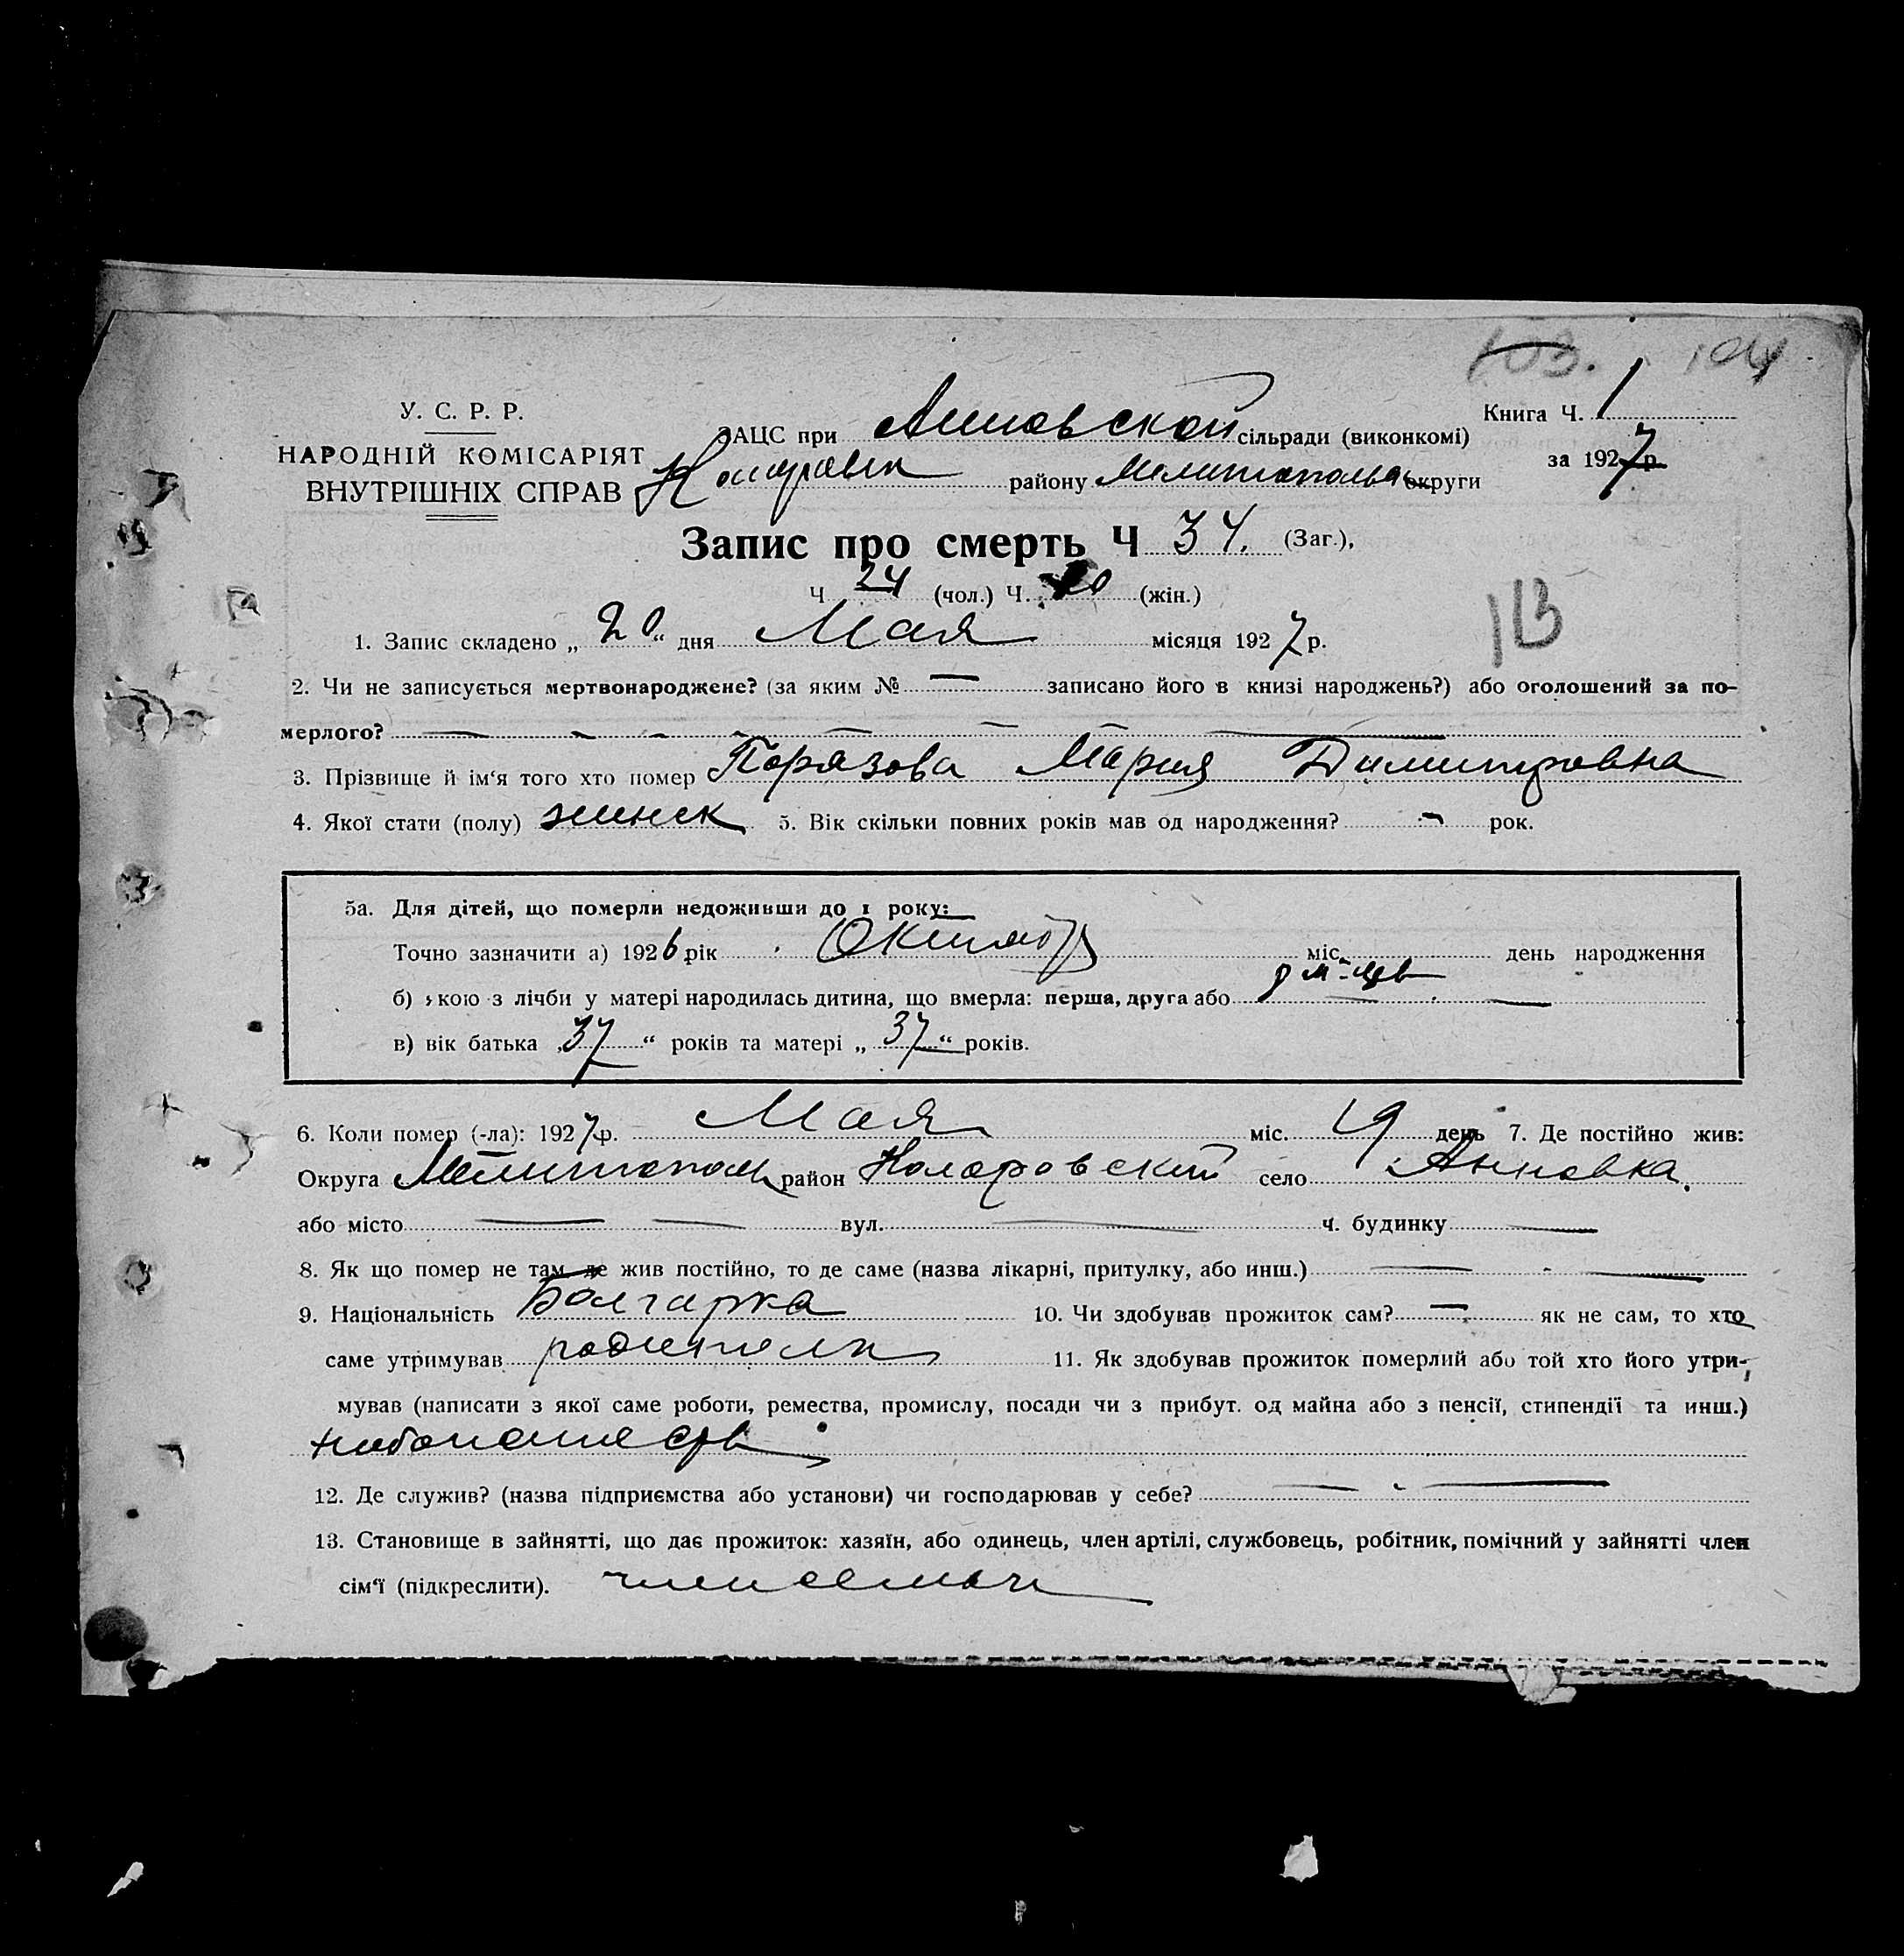 103. 104
У. С. Р. Р.
НАРОДНІЙ КОМІСАРІЯТ
ВНУТРІШНІХ СПРАВ
ЗАЦС при Анновской сільради (виконкомі)
району Мелитопольск округи
Книга Ч. 1
за 1927 р.
Запис про смерть Ч 34. (Заг.),
Ч 24 (чол.) Ч. 10 (жін.)
1. Запис складено „ 20 “ дня Мая місяця 1927 р.
113
2. Чи не записується мертвонароджене? (за яким № — записано його в книзі народжень?) або оголошений за по-
мерлого?
3. Прізвище й ім‘я того хто помер Порязова Мария Димитровна
4. Якої стати (полу) женск 5. Вік скільки повних років мав од народження? - рок.
5а. Для дітей, що померли недоживши до 1 року:
Точно зазначити а) 1926 рік Октябр міс. день народження
б) якою з лічби у матері народилась дитина, що вмерла: перша, друга або
в) вік батька „37“ років та матері „37“ років.
6. Коли помер (-ла): 1927 р. Мая міс. 19 день 7. Де постійно жив:
Округа Мелитопол район Коларовский село Анновка.
або місто — — вул. — ч. будинку —
8. Як що помер не там, де жив постійно, то де саме (назва лікарні, притулку, або инш.) — -
9. Національність Болгарка 10. Чи здобував прожиток сам? — як не сам, то хто
саме утримував родители 11. Як здобував прожиток померлий або той хто його утри-
мував (написати з якої саме роботи, ремества, промислу, посади чи з прибут. од майна або з пенсії, стипендії та инш.)
хлебопашеств
12. Де служив? (назва підприємства або установи) чи господарював у себе? —
13. Становище в зайнятті, що дає прожиток: хазяїн, або одинець, член артілі, службовець, робітник, помічний у зайнятті член
сім‘ї (підкреслити). член семьи